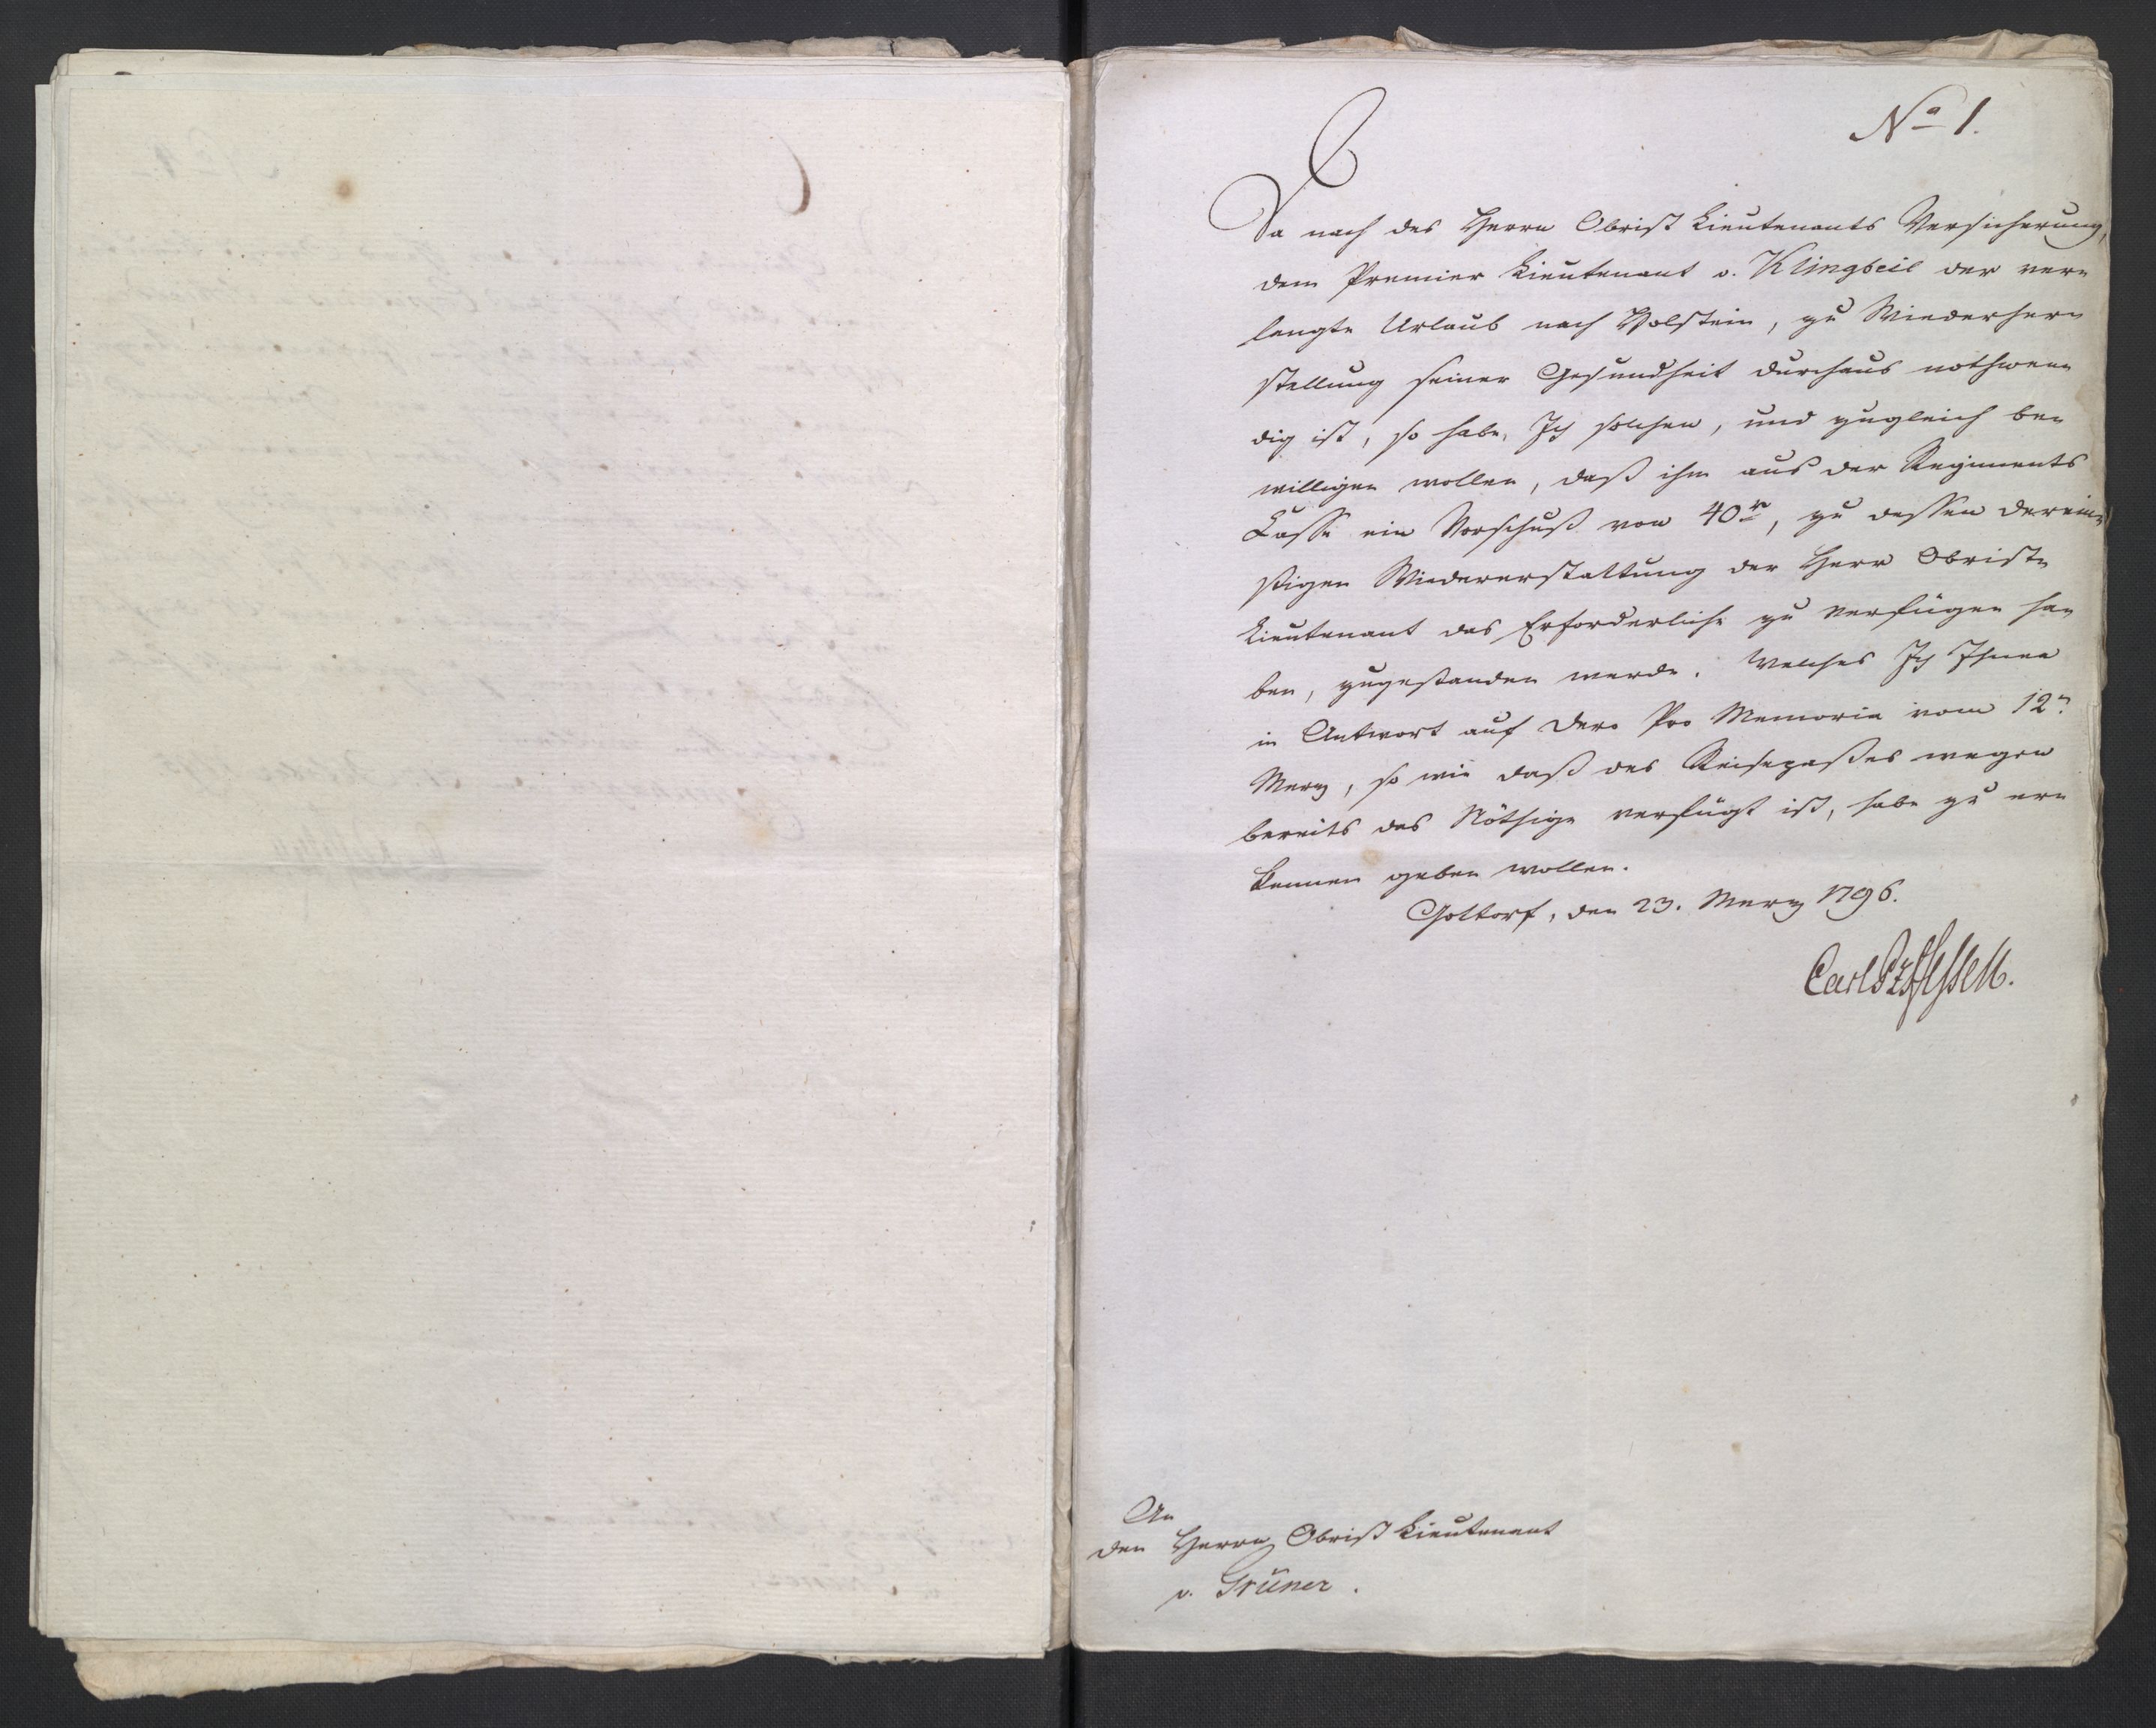 No 1.
Da nach des Herrn Obrist Lieutenants Versicherung,
dem Premier Lieutenant v. Klingbeil der ver-
langte Urlaub nach Holstein, zu Wiederher-
stellung seiner Gesundheit durchaus nothwen-
dig ist, so habe Ich solchen, und zugleich be-
willigen wollen, daß ihm aus der Regiments
Casse ein Vorschuß von 40 r, zu dessen derein-
stigen Wiedererstattung der Herr Obrist-
Lieutenant das Erforderliche zu verfügen ha-
ben, zugestanden werde. Welches Ich Ihnen
in Antwort auf Dero Pro Memoria vom 12n.
Merz, so wie daß des Reisepaßes wegen
bereits das Nöthige verfügt ist, habe zu er-
kennen geben wollen.
Gottorf, den 23. Merz 1796.
Carl Pz Hessen.
An
den Herrn Obrist Lieutenant
v. Grüner.